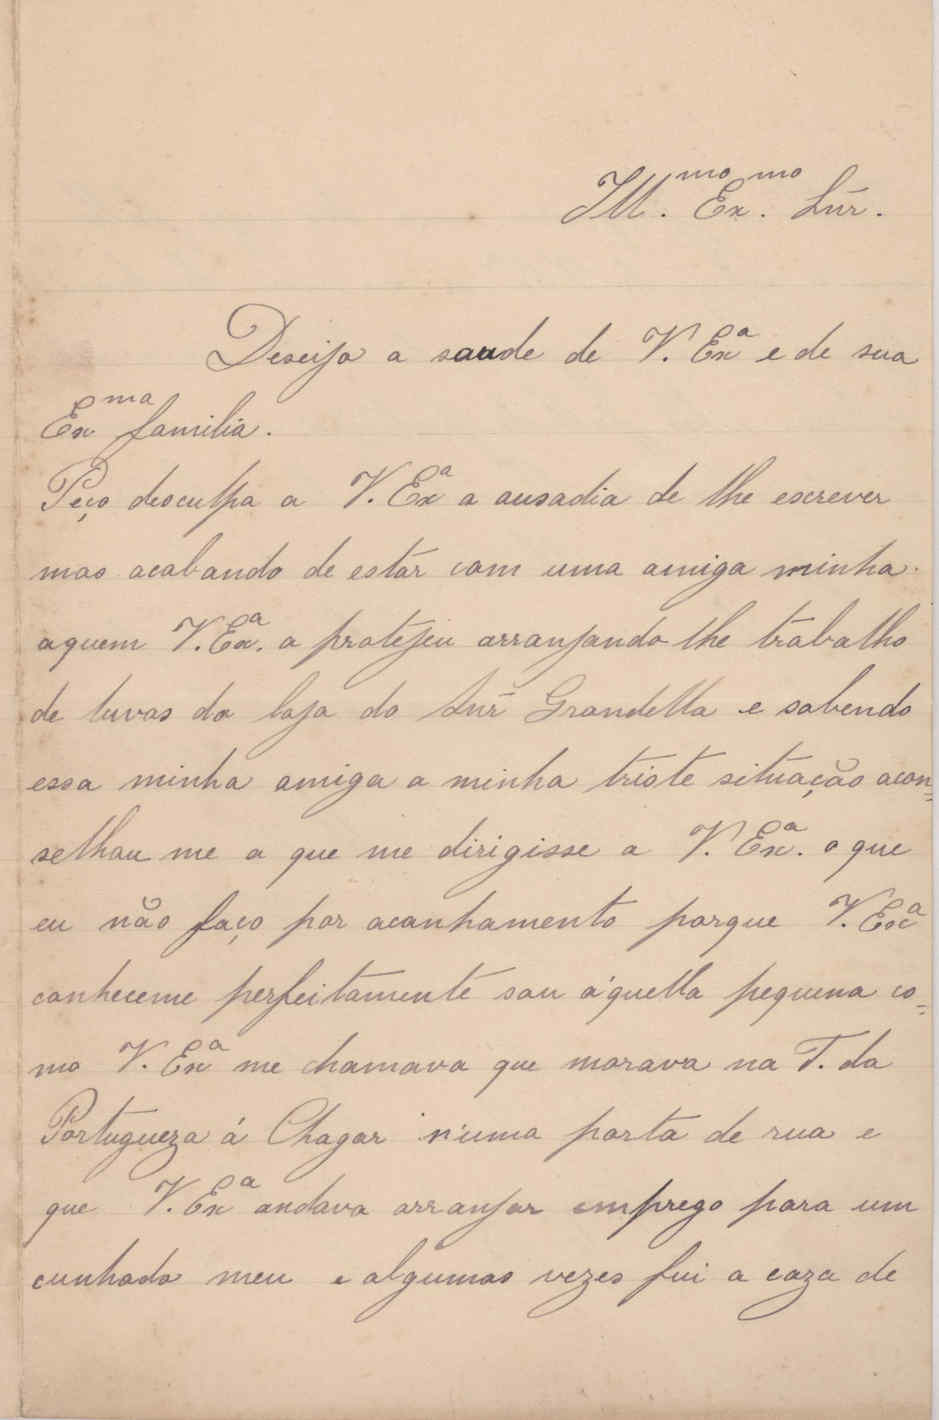 Ill.mo Ex.mo Snr.
Deseijo a saude de V. Exª e de sua
Exma familia.
Peço desculpa a V. Exª a ausadia de lhe escrever
mas acabando de estar com uma amiga minha
aquem V. Exª. a protejeu arranjando lhe trabalho
de luvas da loja do Snr Grandella e sabendo
essa minha amiga a minha triste situação acon=
selhou me a que me dirigisse a V. Exª. o que
eu não faço por acanhamento porque V. Exª
conheceme perfeitamente sou áquella pequena co=
mo V. Exª me chamava que morava na T. da
Portugueza á Chagar n'uma porta de rua e
que V. Exª andava arranjar emprego para um
cunhado meu e algumas vezes fui a caza de